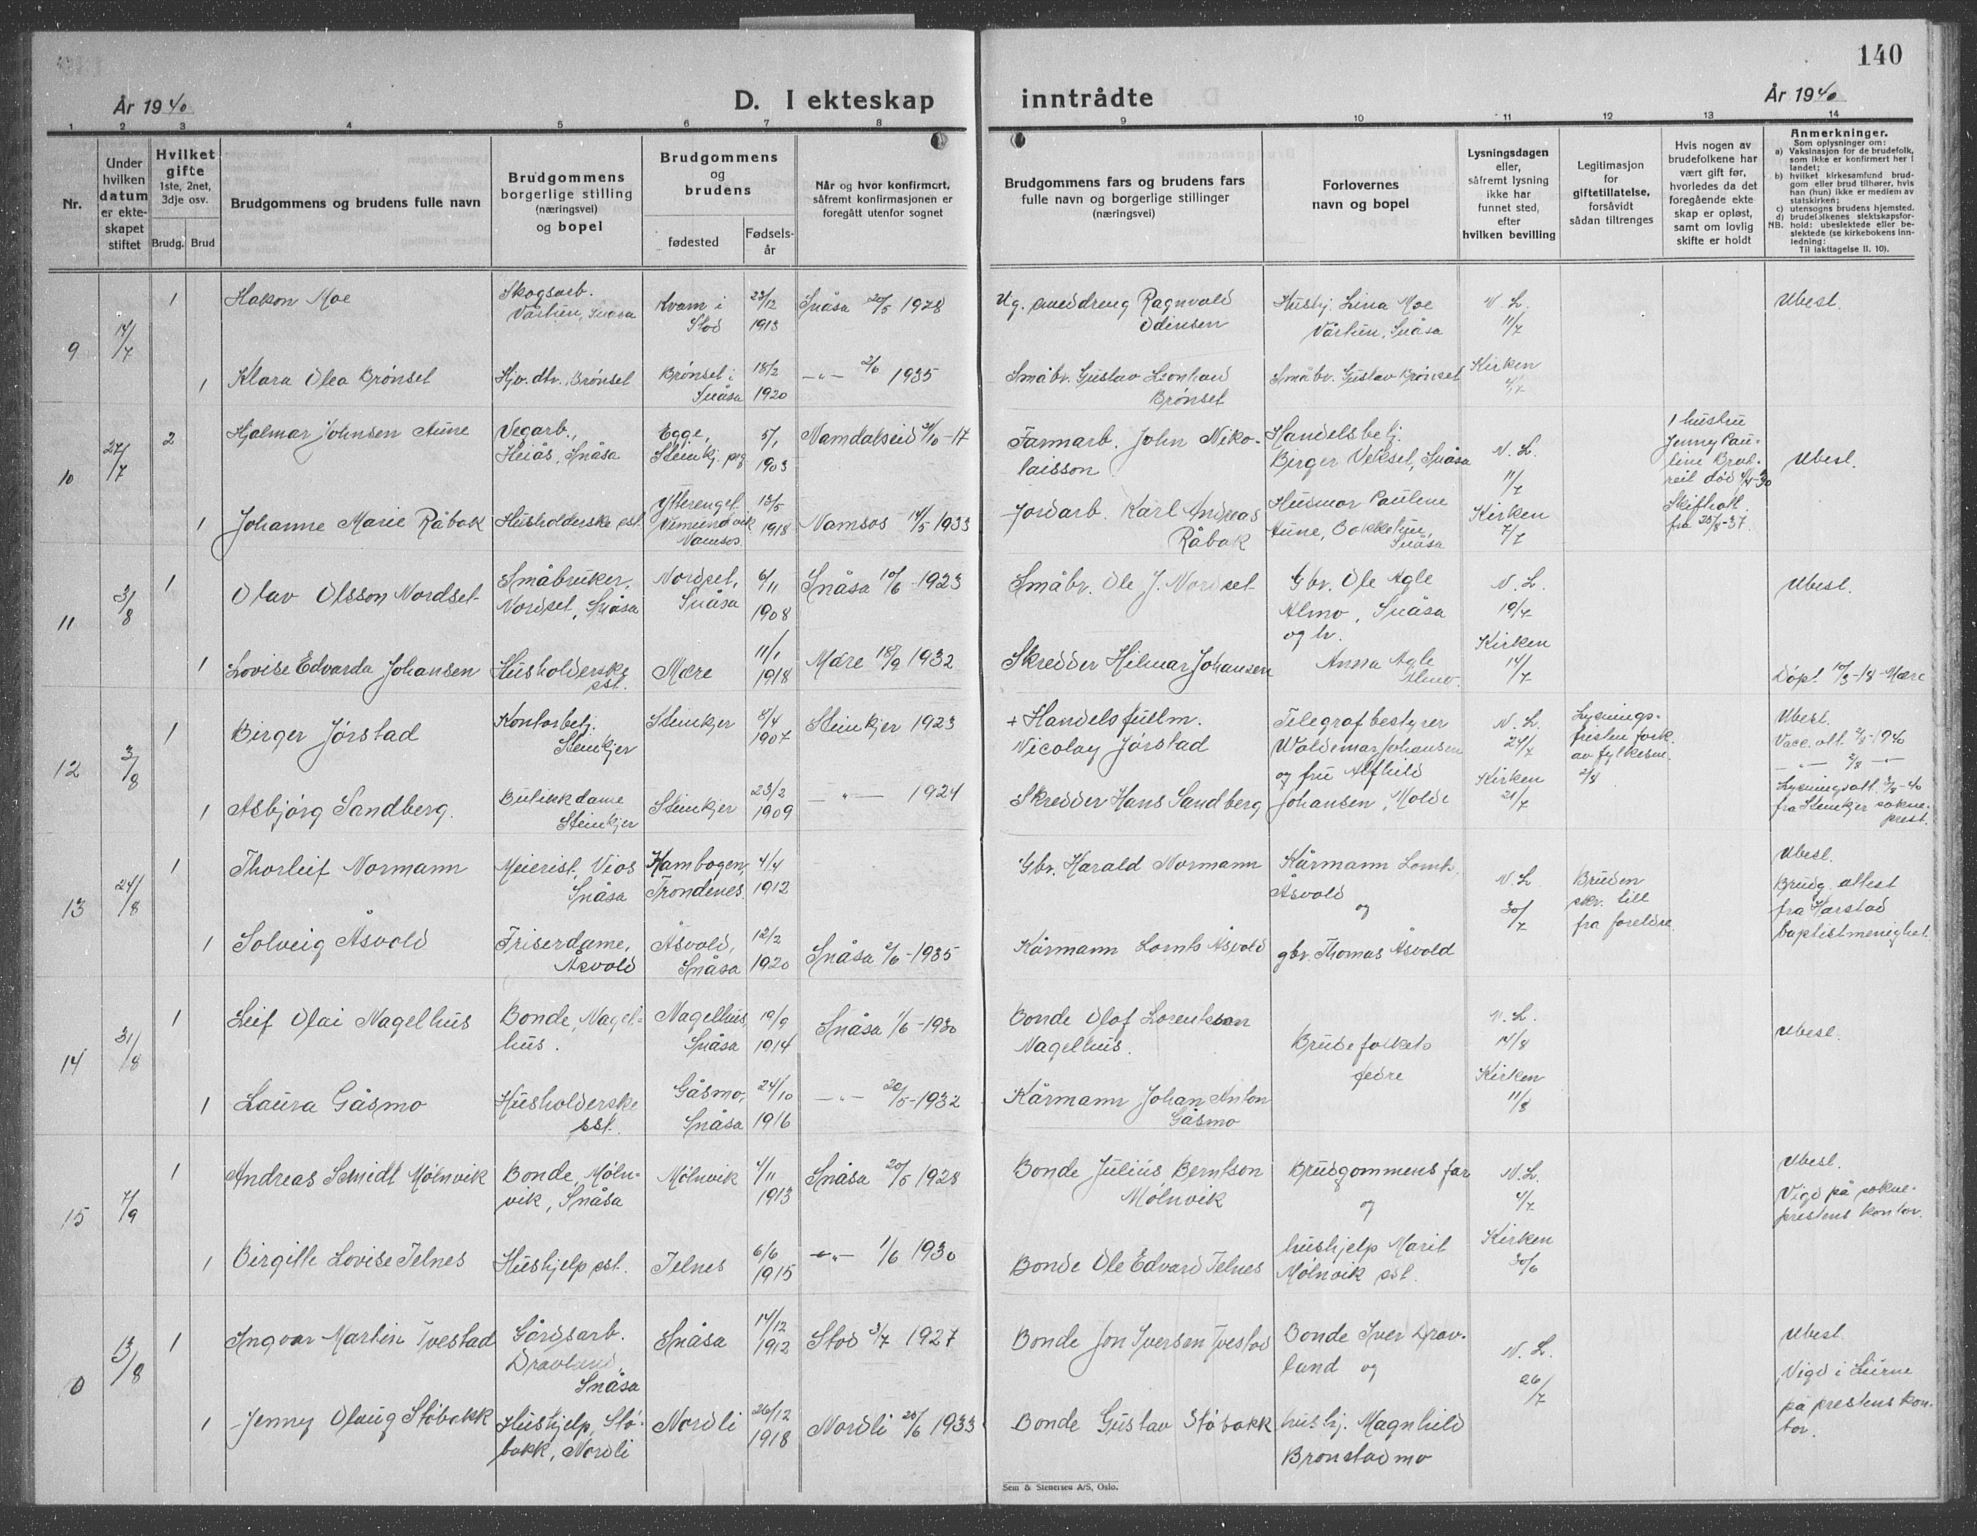 140
År 1940
D. I ekteskap inntrådte
År 1940
1 2 3 4 5 6 7 8 9 10 11 12 13 14
Nr.
Under hvilken datum er ekteskapet stiftet
Hvilket gifte 1ste, 2net, 3dje osv.
Brudg. Brud
Brudgommens og brudens fulle navn
Brudgommens borgerlige stilling (næringsvei) og bopel
Brudgommens og brudens
fødested
Fødselsår
Når og hvor konfirmert, såfremt konfirmasjonen er foregått utenfor sognet
Brudgommens fars og brudens fars fulle navn og borgerlige stillinger (næringsvei)
Forlovernes navn og bopel
Lysningsdagen eller, såfremt lysning ikke har funnet sted, efter hvilken bevilling
Legitimasjon for giftetillatelse, forsåvidt sådan tiltrenges
Hvis nogen av brudefolkene har vært gift før, hvorledes da det foregående ekteskap er opløst, samt om lovlig skifte er holdt
Anmerkninger.
Som oplysninger om:
a) Vaksinasjon for de brudefolk, som ikke er konfirmert her i landet;
b) hvilket kirkesamfund brudgom eller brud tilhører, hvis han (hun) ikke er medlem av statskirken;
c) utensogns brudens hjemsted.
d) brudefolkenes slektskapsforhold: ubeslektede eller beslektede (se kirkebokens innledning:
NB. Til iakttagelse II. 10).
9 14/7 1 Hakon Moe
Skogsarb. Vårtun, Snåsa
Kvam i Stod
23/12 1913
Snåsa 20/5 1928
Ragnvald Odinsen
Hushj. Lina Moe Vårtun, Snåsa
N. L. 11/7
Ubesl.
1 Klara Olea Brønset
Hjv. dtr., Brønset
Brønset i Snåsa
18/2 1920
—"— 2/6 1935
Småbr. Gustav Leonhard Brønset
Småbr. Gustav Brønset
Kirken
10 27/7 2 Hjalmar Johnsen Aune
Vegarb., Heiås, Snåsa
Egge, Steinkj. prg
5/1 1903
Namdalseid -17
Farmarb. John Nikolaisson
Handelsbetj. Birger Veksel, Snåsa
N. L. 11/7
1 hustru Jenny Pauline død
Ubesl.
1 Johanne Marie Råbak
Husholderske sst.
Vemundvik Namsos
13/5 1918
Namsos 14/5 1933
Jordarb. Karl Andreas Råbak
Husmor Pauline Aune, Snåsa
Kirken 7/7
Skifteatt. fra 25/8-37.
11 3/8 1 Olav Olsson Nordset
Småbruker, Nordset, Snåsa
Nordset, Snåsa
6/11 1908
Snåsa 10/6 -1923
Småbr. Ole J. Nordset
Gbr. Ole Agle Almo, Snåsa og hr.
N. L. 19/7
Ubesl.
1 Lovise Edvarda Johansen
Husholderske sst.
Mære
11/1 1918
Mære 18/9 1932
Skredder Hilmar Johansen
Anna Agle Almo.
Kirken 14/7
Döpt 10/3-18 Mære
12 3/8 1 Birger Jørstad
Kontorbetj. Steinkjer
Steinkjer
8/4 1907
Steinkjer 1923
+ Handelsfullm. Nicolay Jørstad
Telegrafbestyrer Waldemar Johansen
N. L. 24/7
Lysningsfristen fork. av fylkesm. 2/8
Ubesl. Vacc. att. -1940
1 Asbjørg Sandberg.
Butikkdame Steinkjer
Steinkjer
23/2 1909
—"— 1924
Skredder Hans Sandberg
og fru Alfhild Johansen, Molde
Kirken 21/7
Lysningsatt. 3/8-40 fra Steinkjer sokneprest.
13 24/8 1 Thorleif Normann
Meierist, Vios Snåsa
Kambogen, Trondenes.
4/4 1912
Gbr. Harald Normann
Kårmann Lornts Åsvold og
N. L. 30/7
Bruden skr. till fra foreldre
Ubesl. Brudg. attest fra Harstad baptistmenighet.
1 Solveig Åsvold
Friserdame, Åsvold
Åsvold, Snåsa
12/2 1920
Snåsa 2/6 -1935
Kårmann Lornts Åsvold
gbr. Thomas Åsvold
14 31/8 1 Leif Olai Nagelhus
Bonde, Nagelhus.
Nagelhus, Snåsa
19/9 1914
Snåsa 1/6 -1930
Bonde Olaf Lorentsen Nagelhus.
Brudefolkets fedre
N. L. 14/8
Ubesl.
1 Laura Gåsmo
Husholderske sst.
Gåsmo, Snåsa
24/10 1916
—"— 22/5 -1932
Kårmann Johan Anton Gåsmo
Kirken 11/8
15 7/9 1 Andreas Schmidt Mølnvik
Bonde, Mølnvik, Snåsa
Mølnvik
4/11 1913
Snåsa 20/5 1928
Bonde Julius Berntson Mølnvik
Brudgommens far og
N. L. 4/7
Ubesl. Vigd på sokneprestens kontor.
1 Birgitte Lovise Jelnes
Hushjelp sst.
Jelnes
6/6 1915
—"— 1/6 1930
Bonde Ole Edvard Jelnes
hushjelp Marit Mølnvik sst.
Kirken 30/6
0 13/8 1 Ingvar Martin Ivestad
Gårdsarb. Dravland, Snåsa
Snåsa
14/12 1912
Stod 3/7 1927
Bonde Jon Iversen Ivestad
Bonde Iver Dravland og
N. L. 26/7
Ubesl. Vigd i Lierne på prestens kontor.
1 Jenny Olaug Støbakk
Hushjelp, Støbakk, Nordli
Nordli
26/12 1918
Nordli 25/6 1933
Bonde Gustav Støbakk
hushj. Magnhild Brønstadmo
Sem & Stenersen A/S, Oslo.